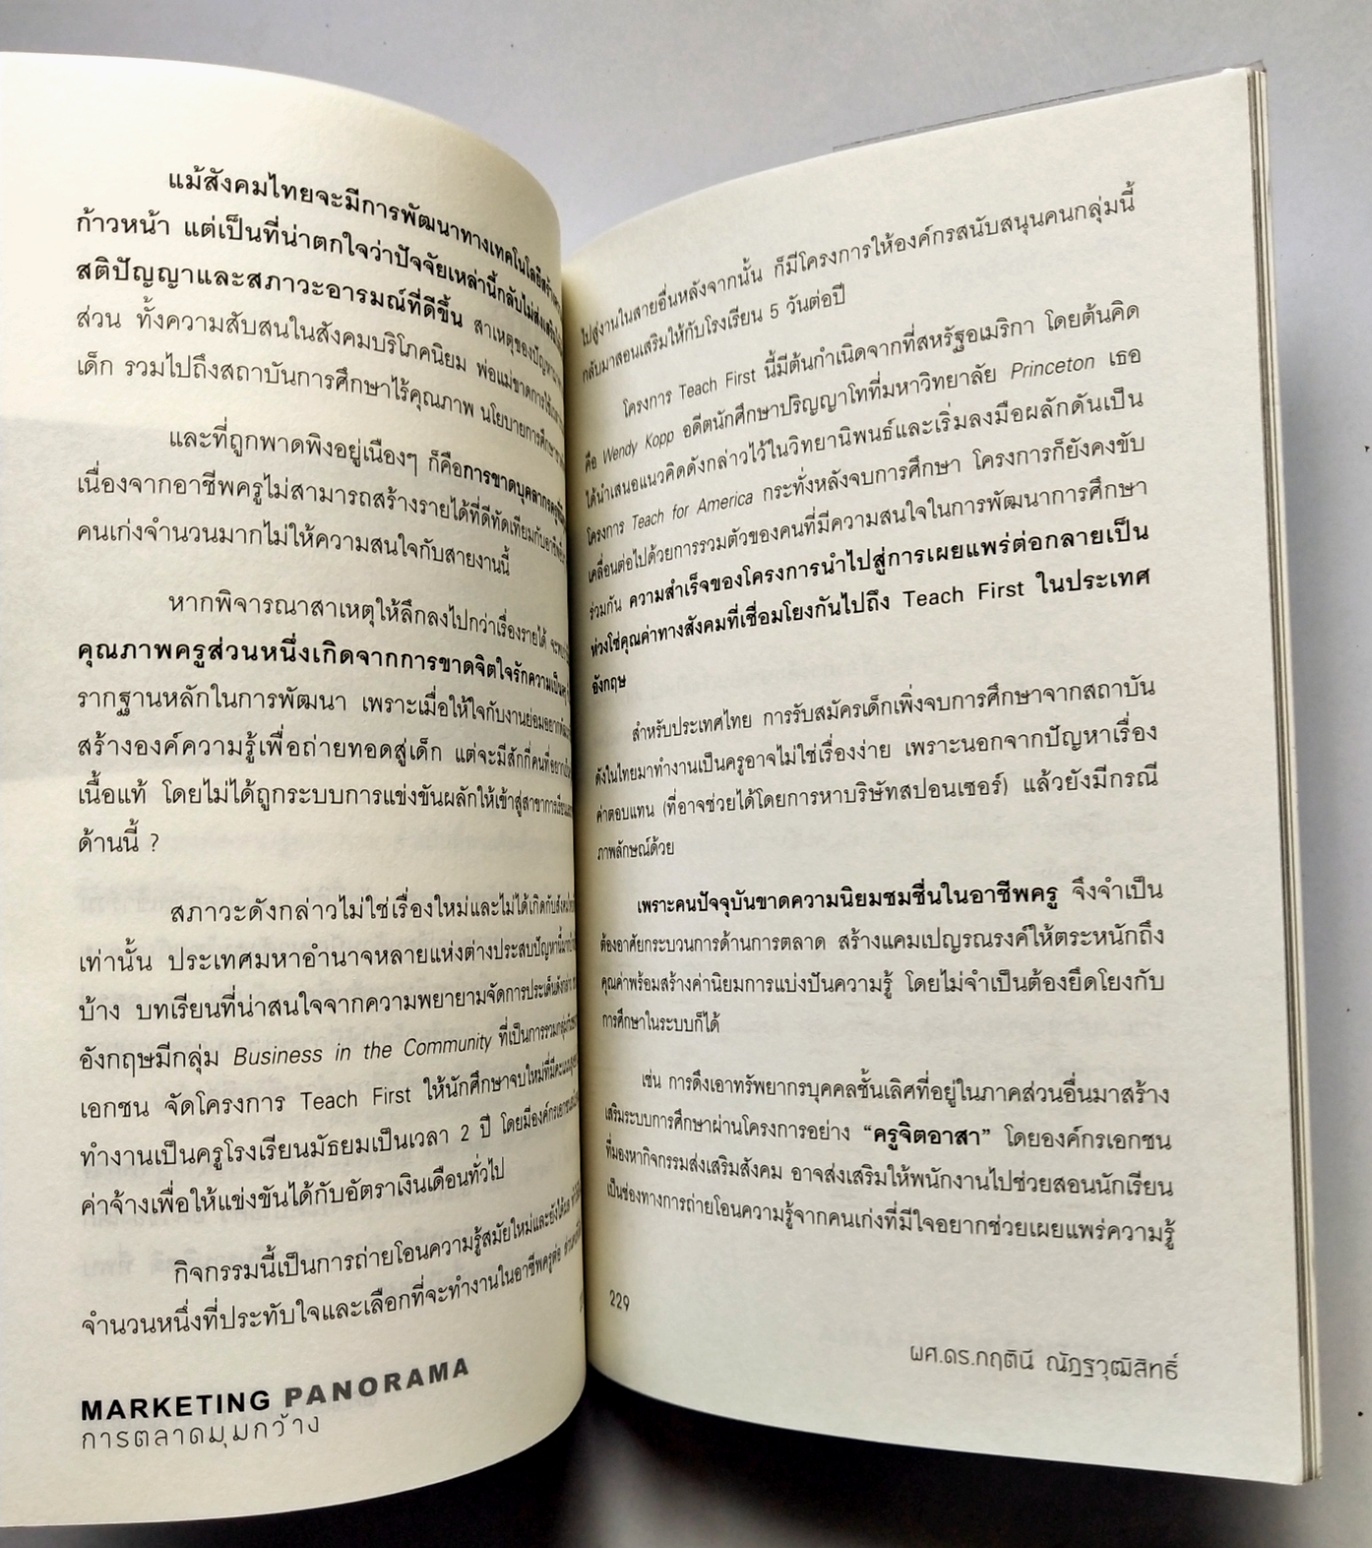 แม้สังคมไทยจะมีการพัฒนาทางเทคโนโลยีสร้าง
ก้าวหน้า แต่เป็นที่น่าตกใจว่าปัจจัยเหล่านี้กลับไม่ส่งผล
สติปัญญาและสภาวะอารมณ์ที่ดีขึ้น สาเหตุของปัญหา
ส่วน ทั้งความสับสนในสังคมบริโภคนิยม พ่อแม่ขาดการใช้เวลา
เด็ก รวมไปถึงสถาบันการศึกษาไร้คุณภาพ นโยบายการศึกษา
และที่ถูกพาดพิงอยู่เนืองๆ ก็คือการขาดบุคลากรครู
เนื่องจากอาชีพครูไม่สามารถสร้างรายได้ที่ดีทัดเทียมกับอาชีพ
คนเก่งจำนวนมากไม่ให้ความสนใจกับสายงานนี้
หากพิจารณาสาเหตุให้ลึกลงไปกว่าเรื่องรายได้
คุณภาพครูส่วนหนึ่งเกิดจากการขาดจิตใจรักความเป็น
รากฐานหลักในการพัฒนา เพราะเมื่อให้ใจกับงานย่อมอยาก
สร้างองค์ความรู้เพื่อถ่ายทอดสู่เด็ก แต่จะมีสักกี่คนที่อยาก
เนื้อแท้ โดยไม่ได้ถูกระบบการแข่งขันผลักให้เข้าสู่สาขาการเรียน
ด้านนี้ ?
สภาวะดังกล่าวไม่ใช่เรื่องใหม่และไม่ได้เกิดกับ
เท่านั้น ประเทศมหาอำนาจหลายแห่งต่างประสบปัญหานี้
บ้าง บทเรียนที่น่าสนใจจากความพยายามจัดการประเด็นดังกล่าว
อังกฤษมีกลุ่ม Business in the Community ที่เป็นการรวมกลุ่ม
เอกชน จัดโครงการ Teach First ให้นักศึกษาจบใหม่ที่มีคะแนน
ทำงานเป็นครูโรงเรียนมัธยมเป็นเวลา 2 ปี โดยมีองค์กรเอกชน
ค่าจ้างเพื่อให้แข่งขันได้กับอัตราเงินเดือนทั่วไป
กิจกรรมนี้เป็นการถ่ายโอนความรู้สมัยใหม่และยังได้ผล
จำนวนหนึ่งที่ประทับใจและเลือกที่จะทำงานในอาชีพครูต่อ
MARKETING PANORAMA
การตลาดมุมกว้าง
ไปสู่งานในสายอื่นหลังจากนั้น ก็มีโครงการให้องค์กรสนับสนุนคนกลุ่มนี้
กลับมาสอนเสริมให้กับโรงเรียน 5 วันต่อปี
โครงการ Teach First นี้มีต้นกำเนิดจากที่สหรัฐอเมริกา โดยต้นคิด
คือ Wendy Kopp อดีตนักศึกษาปริญญาโทที่มหาวิทยาลัย Princeton เธอ
ได้นำเสนอแนวคิดดังกล่าวไว้ในวิทยานิพนธ์และเริ่มลงมือผลักดันเป็น
โครงการ Teach for America กระทั่งหลังจบการศึกษา โครงการก็ยังคงขับ
เคลื่อนต่อไปด้วยการรวมตัวของคนที่มีความสนใจในการพัฒนาการศึกษา
ร่วมกัน ความสำเร็จของโครงการนำไปสู่การเผยแพร่ต่อกลายเป็น
ห่วงโซ่คุณค่าทางสังคมที่เชื่อมโยงกันไปถึง Teach First ในประเทศ
อังกฤษ
สำหรับประเทศไทย การรับสมัครเด็กเพิ่งจบการศึกษาจากสถาบัน
ดังในไทยมาทำงานเป็นครูอาจไม่ใช่เรื่องง่าย เพราะนอกจากปัญหาเรื่อง
ค่าตอบแทน (ที่อาจช่วยได้โดยการหาบริษัทสปอนเซอร์) แล้วยังมีกรณี
ภาพลักษณ์ด้วย
เพราะคนปัจจุบันขาดความนิยมชมชื่นในอาชีพครู จึงจำเป็น
ต้องอาศัยกระบวนการด้านการตลาด สร้างแคมเปญรณรงค์ให้ตระหนักถึง
คุณค่าพร้อมสร้างค่านิยมการแบ่งปันความรู้ โดยไม่จำเป็นต้องยึดโยงกับ
การศึกษาในระบบก็ได้
เช่น การดึงเอาทรัพยากรบุคคลชั้นเลิศที่อยู่ในภาคส่วนอื่นมาสร้าง
เสริมระบบการศึกษาผ่านโครงการอย่าง “ครูจิตอาสา” โดยองค์กรเอกชน
ที่มองหากิจกรรมส่งเสริมสังคม อาจส่งเสริมให้พนักงานไปช่วยสอนนักเรียน
เป็นช่องทางการถ่ายโอนความรู้จากคนเก่งที่มีใจอยากช่วยเผยแพร่ความรู้
229
ผศ.ดร.กฤตินี ณัฏฐวุฒิสิทธิ์